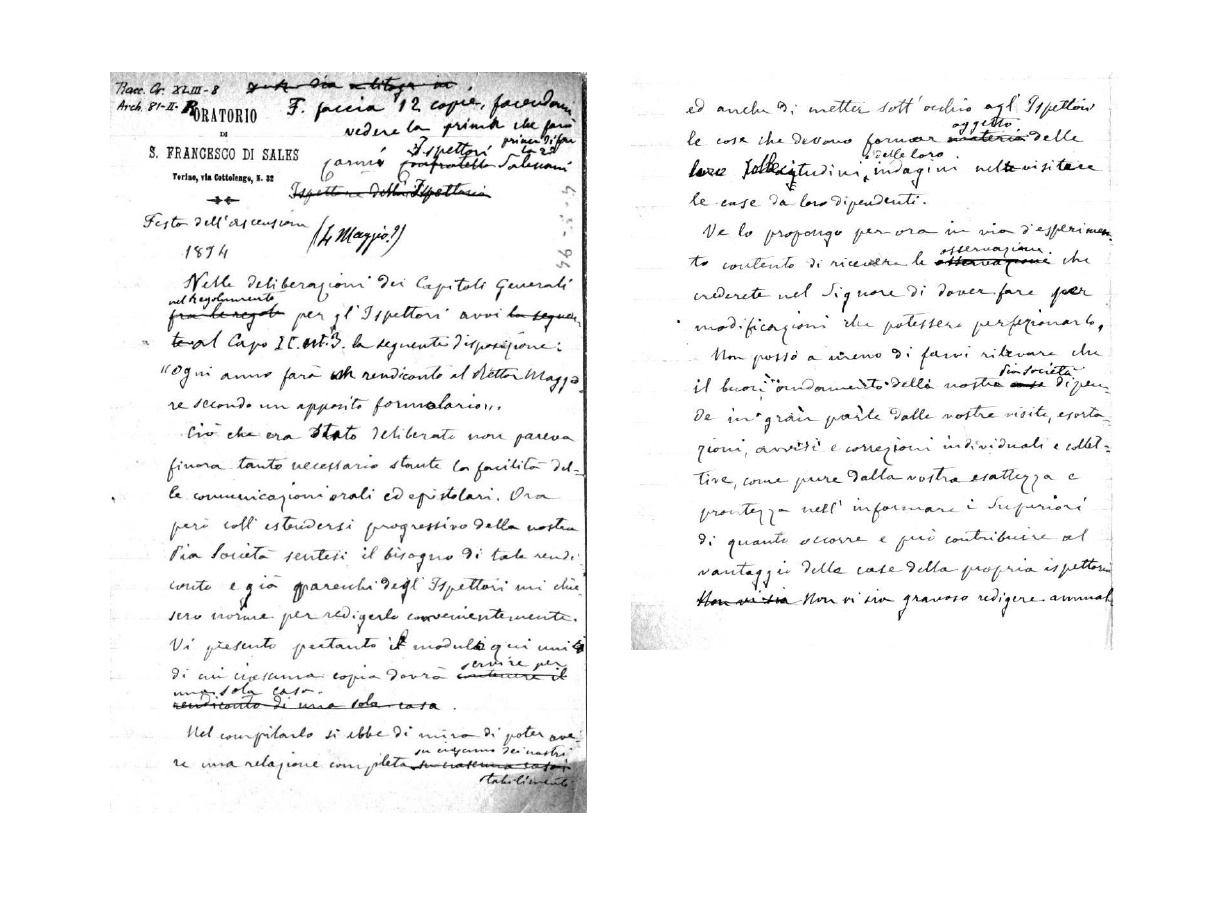 Racc. Or. XLIII-8
Arch. 81-II-
F. faccia 12 copie, facendomi
vedere la prima che farà
prima di far
la 2ª
ORATORIO
DI
S. FRANCESCO DI SALES
Torino, via Cottolengo, N. 32
Ispettori
Carmi confratelli Salesiani
Ispettore della Ispettoria
4-5-94
Festa dell'ascensione
(4 Maggio?)
1894
Nelle deliberazioni dei Capitoli Generali
nel Regolamento
fra le regole per gl'Ispettori avvi la seguen
te al Capo IC. art. 3. la seguente disposizione:
"Ogni anno farà un rendiconto al Rettor Maggio
re secondo un apposito formolario".
Ciò che era stato deliberato non pareva
finora tanto necessario stante la facilità del-
le comunicazioni orali ed epistolari. Ora
però coll'estendersi progressivo della nostra
Pia Società sentesi il bisogno di tale rendi
conto e già parecchi degl'Ispettori mi chie
sero norme per redigerlo convenientemente.
Vi presento pertanto il modulo qui unito
servire per
di cui ciascuna copia dovrà contenere il
una sola casa.
rendiconto di una sola casa.
Nel compilarlo si ebbe di mira di poter ave
su ciascuno dei nostri
re una relazione completa su ciascuna casa
stabilimento
ed anche di metter sott'occhio agl'Ispettori
oggetto
le cose che devono formar materia delle
delle loro
loro sollecitudini, indagini nel visitare
le case da loro dipendenti.
Ve lo propongo per ora in via d'esperimen
osservazioni
to contento di ricevere le osservazioni che
crederete nel Signore di dover fare per
modificazioni che potessero perfezionarlo.
Non posso a meno di farvi rilevare che
pia società
il buon andamento della nostra casa dipen
de in gran parte dalle vostre visite, esorta
zioni, avvisi e correzioni individuali e collet-
tive, come pure dalla vostra esattezza e
prontezza nell'informare i Superiori
di quanto occorre e può contribuire al
vantaggio delle case della propria ispettoria
Non vi sia Non vi sia gravoso redigere annual